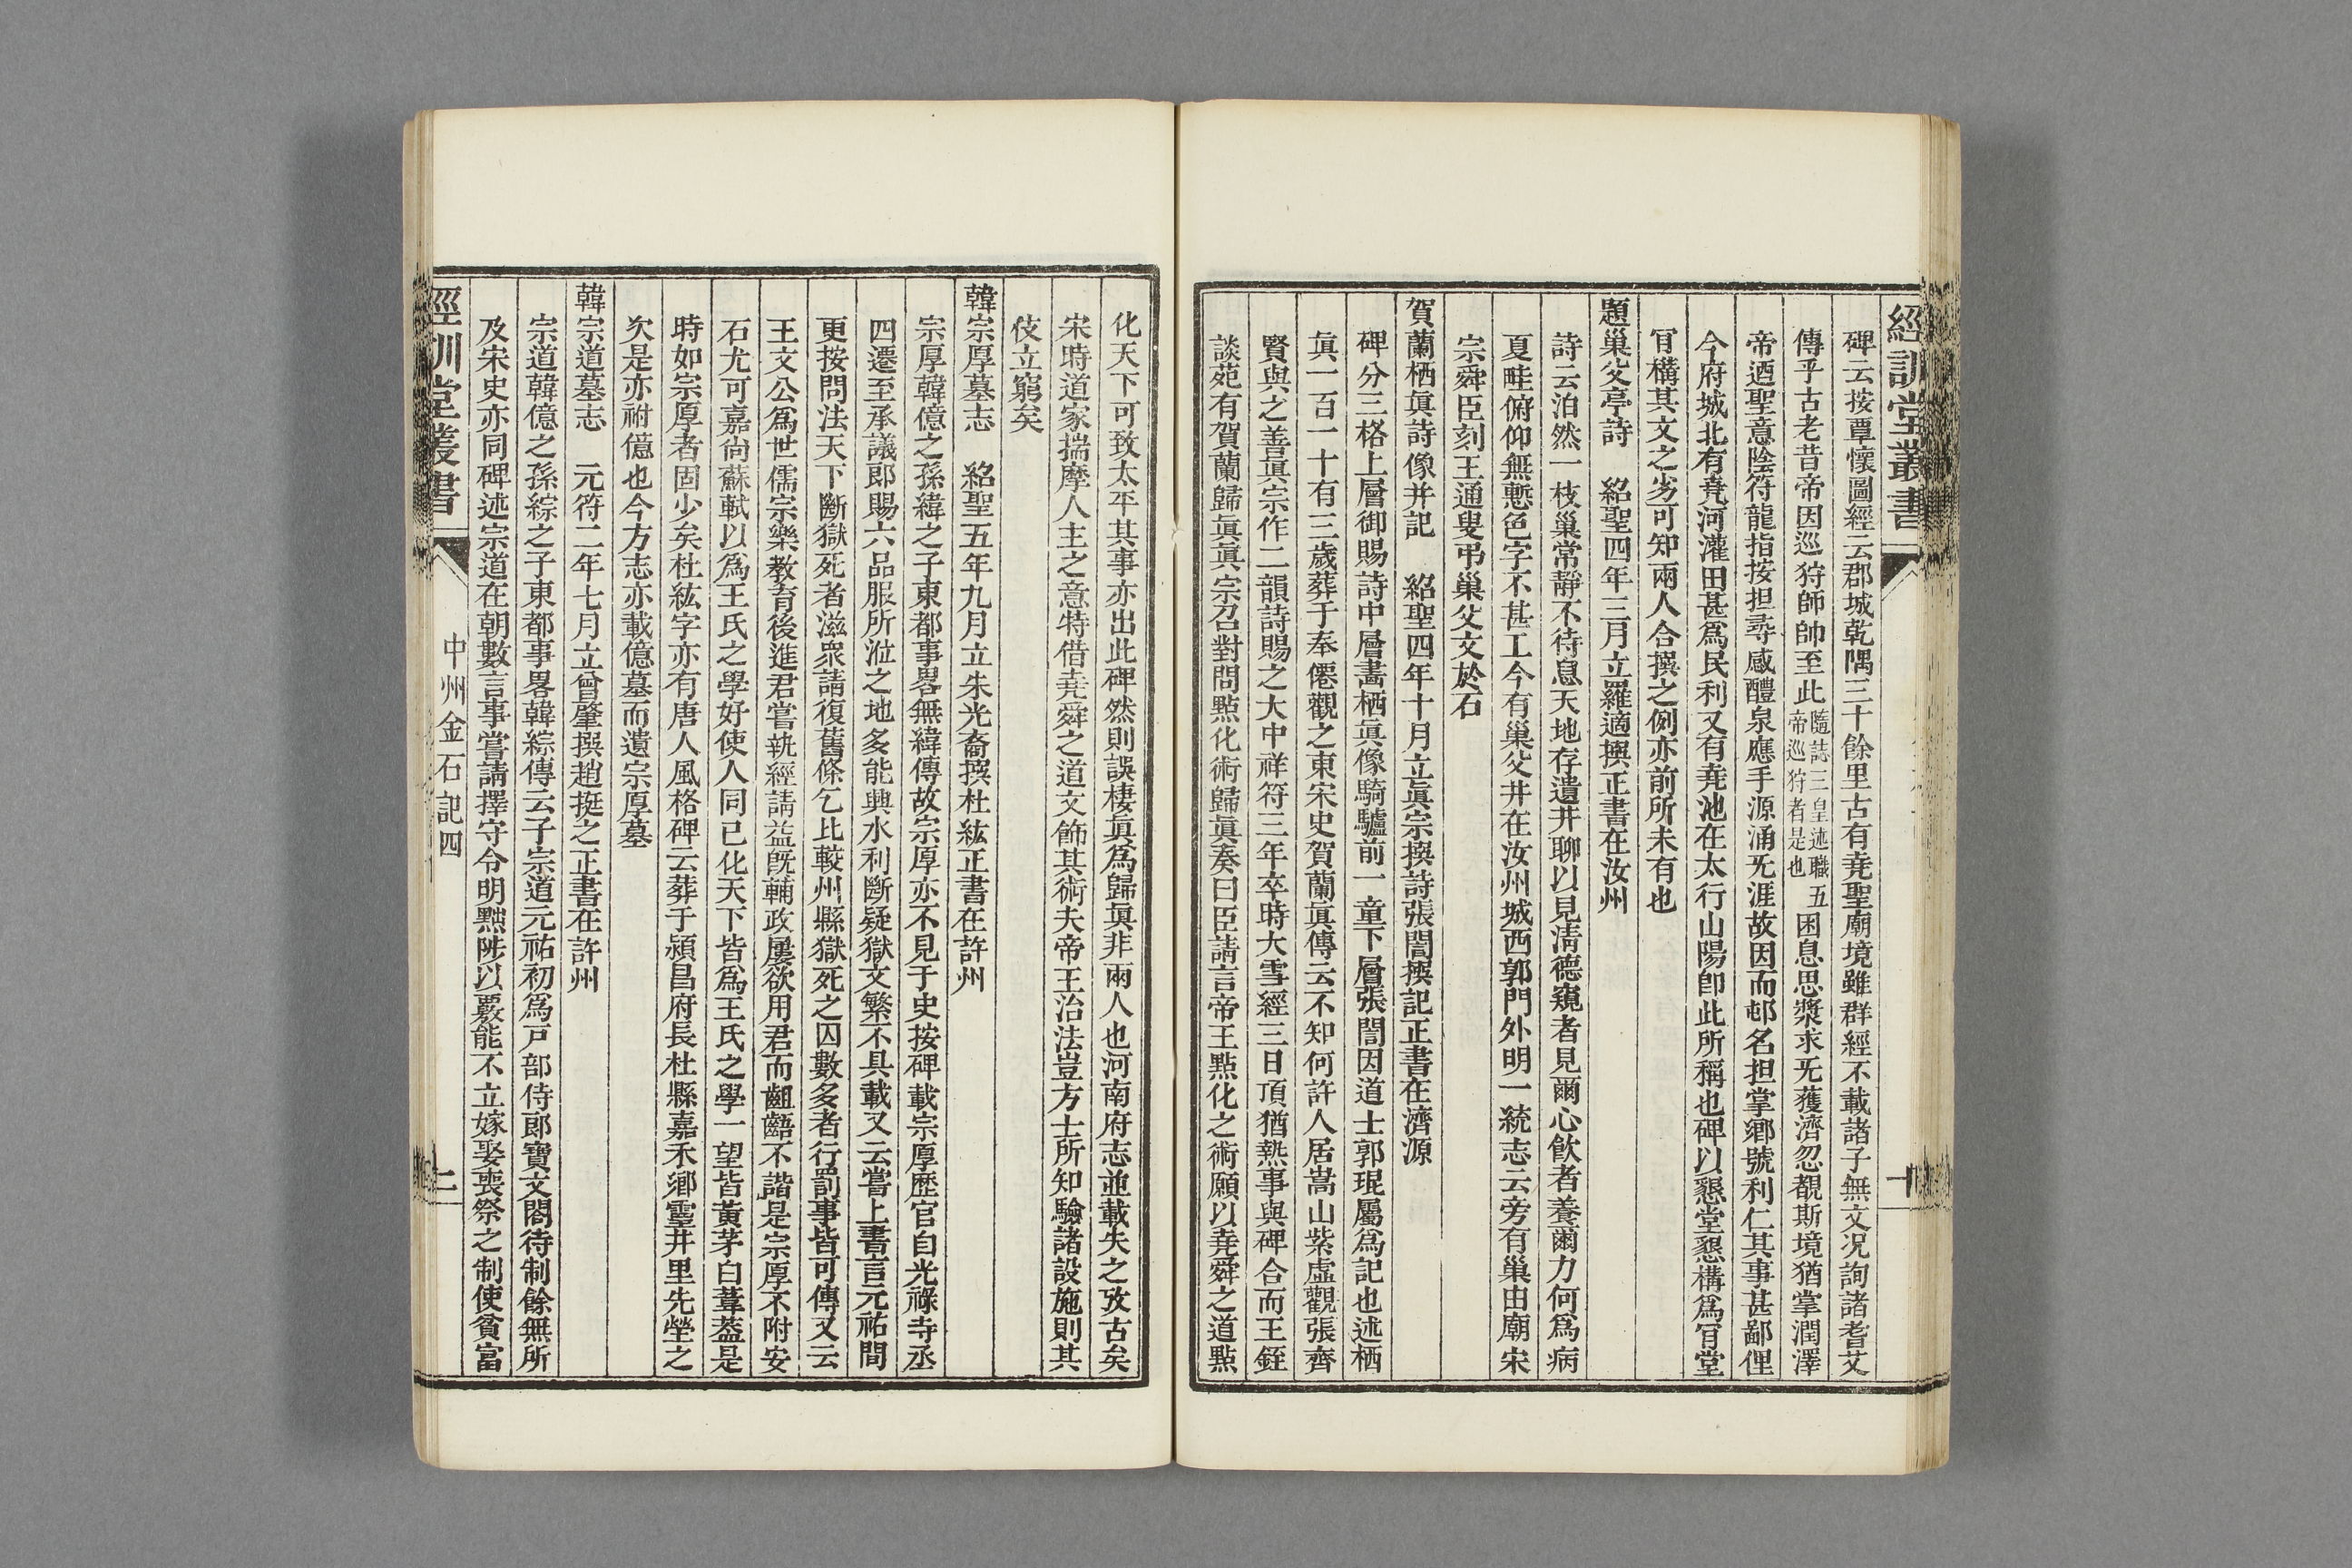 經訓堂叢書
碑云按覃懷圖經云郡城乾隅三十餘里古有堯聖廟境雖群經不載諸子無文况詢諸耆艾
傳乎古老昔帝因巡狩師帥至此隨誌三皇述職五帝巡狩者是也困息思漿求旡獲濟忽覩斯境猶掌潤澤
帝迺聖意陰符龍指按担尋感醴泉應手源涌旡涯故因而邨名担掌鄉號利仁其事甚鄙俚
今府城北有堯河灌田甚爲民利又有堯池在太行山陽卽此所稱也碑以懇堂懇構爲肎堂
肎構其文之劣可知兩人合撰之例亦前所未有也
題巢父亭詩　紹聖四年三月立羅適撰正書在汝州
詩云泊然一枝巢常靜不待息天地存遺井聊以見淸德窺者見爾心飲者養爾力何爲病
夏畦俯仰無慙色字不甚工今有巢父井在汝州城西郭門外明一統志云旁有巢由廟宋
宗舜臣刻王通叟弔巢父文於石
賀蘭栖眞詩像并記　紹聖四年十月立眞宗撰詩張誾撰記正書在濟源
碑分三格上層御賜詩中層畵栖眞像騎驢前一童下層張誾因道士郭琨屬爲記也述栖
眞一百一十有三歲葬于奉僊觀之東宋史賀蘭眞傳云不知何許人居嵩山紫虛觀張齊
賢與之善眞宗作二韻詩賜之大中祥符三年卒時大雪經三日頂猶熱事與碑合而王銍
談苑有賀蘭歸眞眞宗召對問點化術歸眞奏曰臣請言帝王點化之術願以堯舜之道點
化天下可致太平其事亦出此碑然則誤棲眞爲歸眞非兩人也河南府志並載失之攷古矣
宋時道家揣摩人主之意特借堯舜之道文飾其術夫帝王治法豈方士所知驗諸設施則其
伎立窮矣
韓宗厚墓志　紹聖五年九月立朱光裔撰杜紘正書在許州
宗厚韓億之孫緯之子東都事畧無緯傳故宗厚亦不見于史按碑載宗厚歷官自光祿寺丞
四遷至承議郎賜六品服所涖之地多能興水利斷疑獄文繁不具載又云嘗上書言元祐間
更按問法天下斷獄死者滋衆請復舊條乞比較州縣獄死之囚數多者行罰事皆可傳又云
王文公爲世儒宗樂教育後進君嘗執經請益旣輔政屢欲用君而齟齬不諧是宗厚不附安
石尤可嘉尙蘇軾以爲王氏之學好使人同己化天下皆爲王氏之學一望皆黃茅白葦葢是
時如宗厚者固少矣杜紘字亦有唐人風格碑云葬于潁昌府長杜縣嘉禾鄉靈井里先塋之
次是亦祔億也今方志亦載億墓而遺宗厚墓
韓宗道墓志　元符二年七月立曾肇撰趙挺之正書在許州
宗道韓億之孫綜之子東都事畧韓綜傳云子宗道元祐初爲戸部侍郎寶文閣待制餘無所
及宋史亦同碑述宗道在朝數言事嘗請擇守令明黜陟以覈能不立嫁娶喪祭之制使貧富
經訓堂叢書
中州金石記四